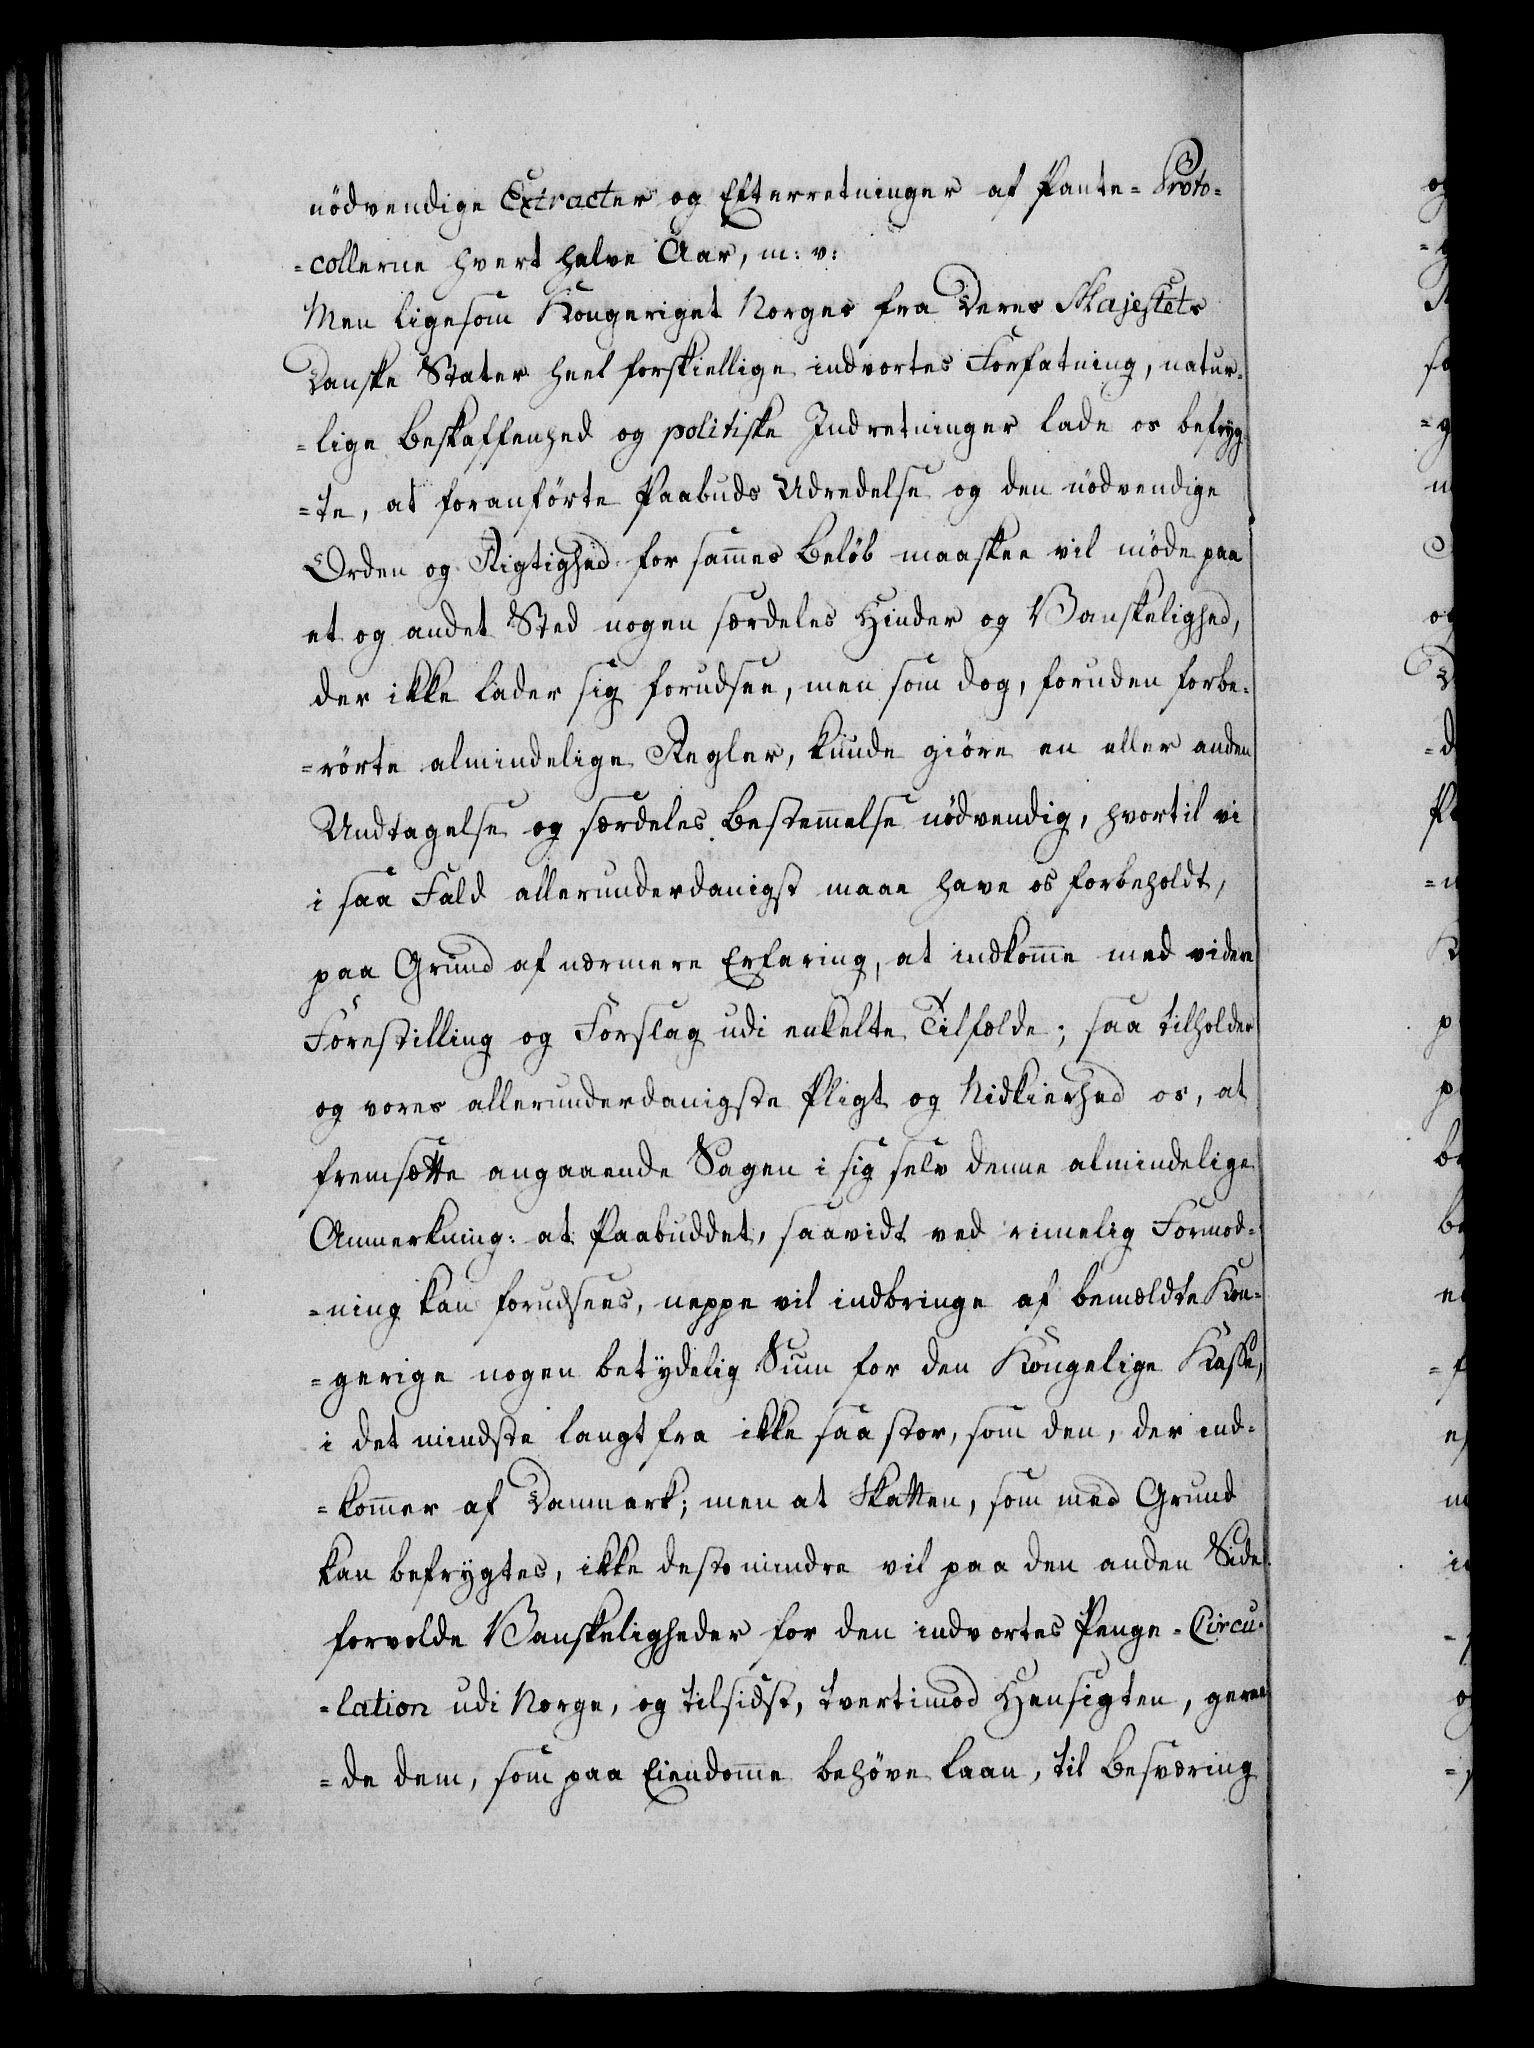 nödvendige Extracter og Efterretninger af Pante-Proto-
-collerne hvert halve Aar, m: v:
Men ligesom Kongeriget Norges fra Deres Majestets
Danske Stater heel forskiellige indvortes Forfatning, natur-
-lige Beskaffenhed og politiske Indretninger lade os befryg-
-te, at foranförte Paabuds Udredelse og den nödvendige
Orden og Rigtighed for sam̅es Belöb maaskee vil möde paa
et og andet Sted nogen særdeles Hinder og Vanskelighed,
der ikke lader sig forudsee, men som dog, foruden forbe-
-rörte almindelige Regler, kunde giöre en eller anden
Undtagelse og særdeles Bestem̅else nödvendig, hvortil vi
i saa Fald allerunderdanigst maae have os forbeholdt,
paa Grund af nærmere Erfaring, at indkom̅e med videre
Forestilling og Forslag udi enkelte Tilfælde; saa tilholder
og vores allerunderdanigste Pligt og Nidkierhed os, at
fremsætte angaaende Sagen i sig selv denne almindelige
Anmerkning: at Paabuddet, saavidt ved rimelig Formod-
-ning kan forudsees, neppe vil indbringe af bemældte Kon-
-gerige nogen betydelig Sum for den Kongelige Kasse,
i det mindste langt fra ikke saa stor, som den, der ind-
-kom̅er af Danmark; men at Skatten, som med Grund
kan befrygtes, ikke desto mindre vil paa den anden Side
forvolde Vanskeligheder for den indvortes Penge-Circu-
-lation udi Norge, og tilsidst, tvertimod Hensigten, geraa-
-de dem, som paa Eiendom̅e behöve Laan, til Besværing